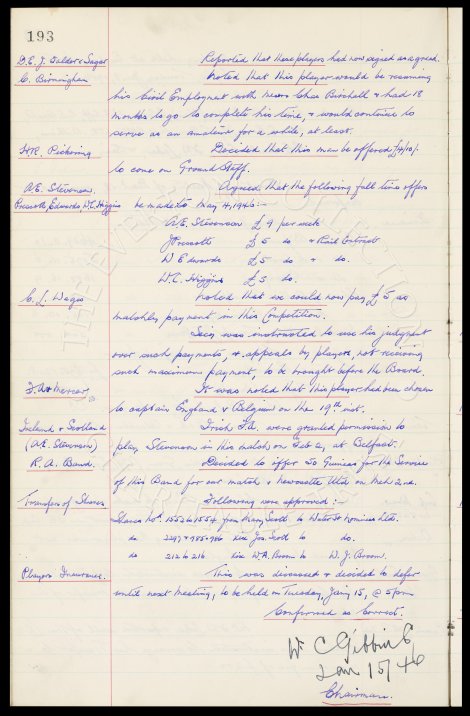 193
D.E.J. Falder & Sagar Reported that these players had now signed as agreed.
C. Birmingham Noted that this player would be resuming
his Civil Employment with Messrs Chas Birchall & had 18
months to go to complete his time, & would continue to
serve as an amateur for a while, at least.
H.R. Pickering Decided that this man be offered £4/10/-
to come on Ground Staff.
A.E. Stevenson. Agreed that the following full time offers
Prescott, Edwards, W.C. Higgins be made to May 4, 1946:-
A.E. Stevenson £9 per week
J Prescott £5 do & Rail Contract
W Edwards £5 do & do.
W.C. Higgins £5 do.
C. L. Wages Noted that we could now pay £5 as
match payment in this Competition.
Secy was instructed to use his judgmt
over such payments, & appeals by players, not receiving
such maximum payment, to be brought before the Board.
F.A. & Mercer It was noted that this player had been chosen
to captain England v Belgium on the 19th inst.
Ireland v Scotland Irish F.A. were granted permission to
(A.E. Stevenson) play Stevenson in this match on Feb 2, at Belfast.
R.A. Band. Decided to offer 50 Guineas for the Service
of this Band for our match v Newcastle Utd on Mch 2nd.
Transfers of Shares Following were approved:-
Shares Nos. 1552 to 1554 from Mary Scott to Water St Nominees Ltd.
do 2297 & 985-986 Exix Jas. Scott to do.
do 212 to 216. Exix W.A. Broom to W. J. Broom.
Players Insurance. This was discussed & decided to defer
until next meeting, to be held on Tuesday, Jany 15, @ 5pm
Confirmed as Correct.
W C Gibbins
Jan 15/46
Chairman.